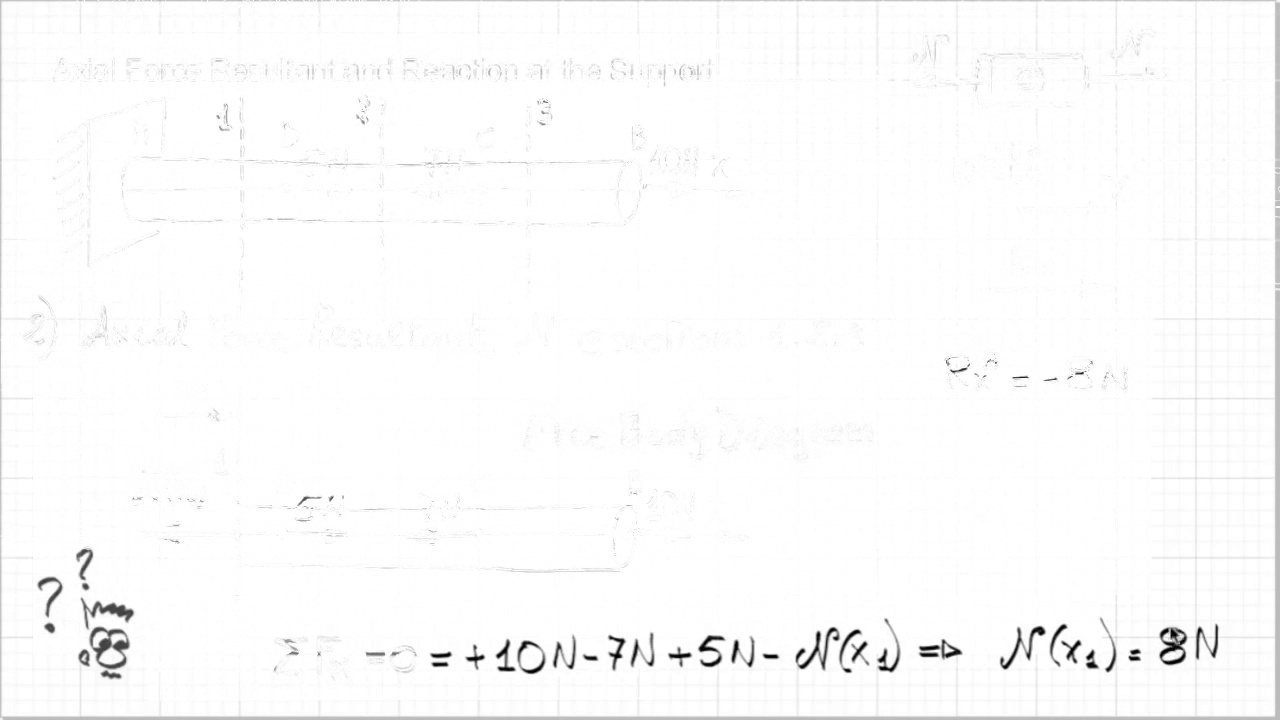 Axial Force Resultant and Reaction at the Support
N N
1 2 3
A D 5N 7N C B 10N x
2) Axial Force Resultant, N @ sections 1.2.3
Rxᴬ = -8N
Free Body Diagram
1
5N 7N B 10N
? ?
ΣFx = 0 = +10N-7N+5N-N(x₁) => N(x₁) = 8N